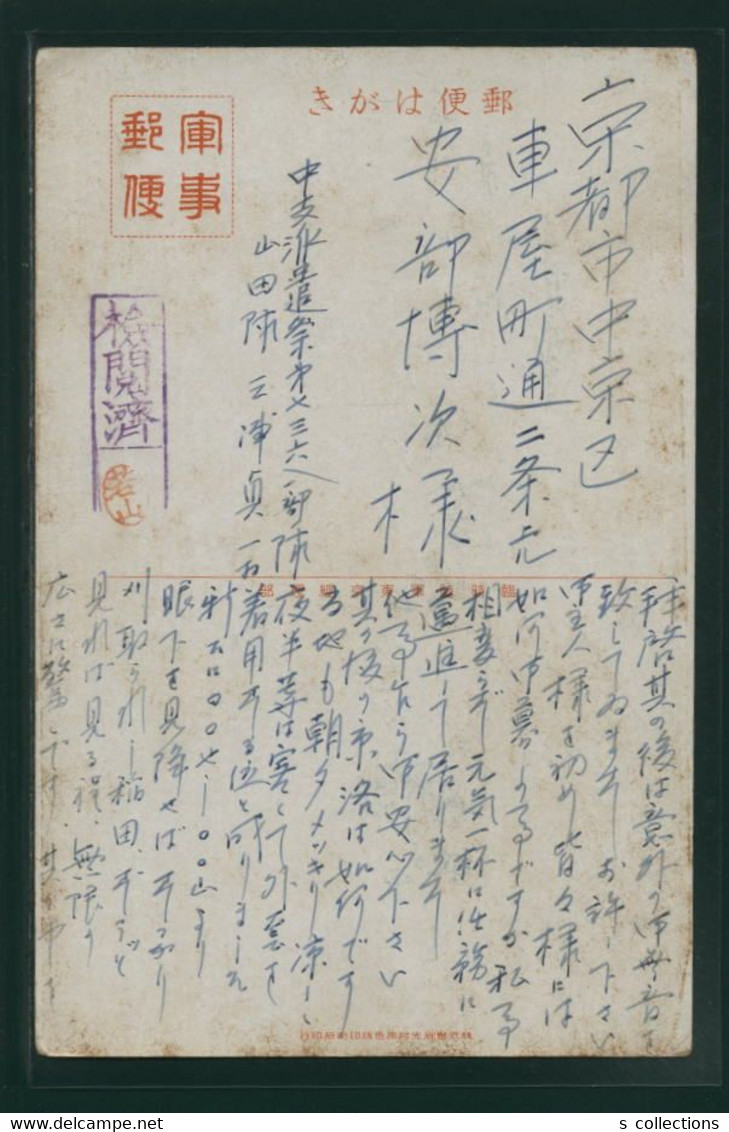 郵便はがき
軍事
郵便
京都市中京区
車屋町通二条上
安部博次様
中支派遣
山田隊 三浦貞一
検閲済
拝啓其の後は意外の御無音を
致してゐます お許し下さい
御主人様を初め皆々様には
如何御暮しですか 私事
相変らず元気一杯に任務に
邁進して居ります
他事乍ら御安心下さい
其の後の京洛は如何です
当地も朝夕メッキリ涼しく
夜半等は寒くて外套を
着用する位と成りました
新山より
眼下を見降せばすつかり
刈取られし稲田、ずうつと
見れば見る程、無限の
広さに驚
s collections